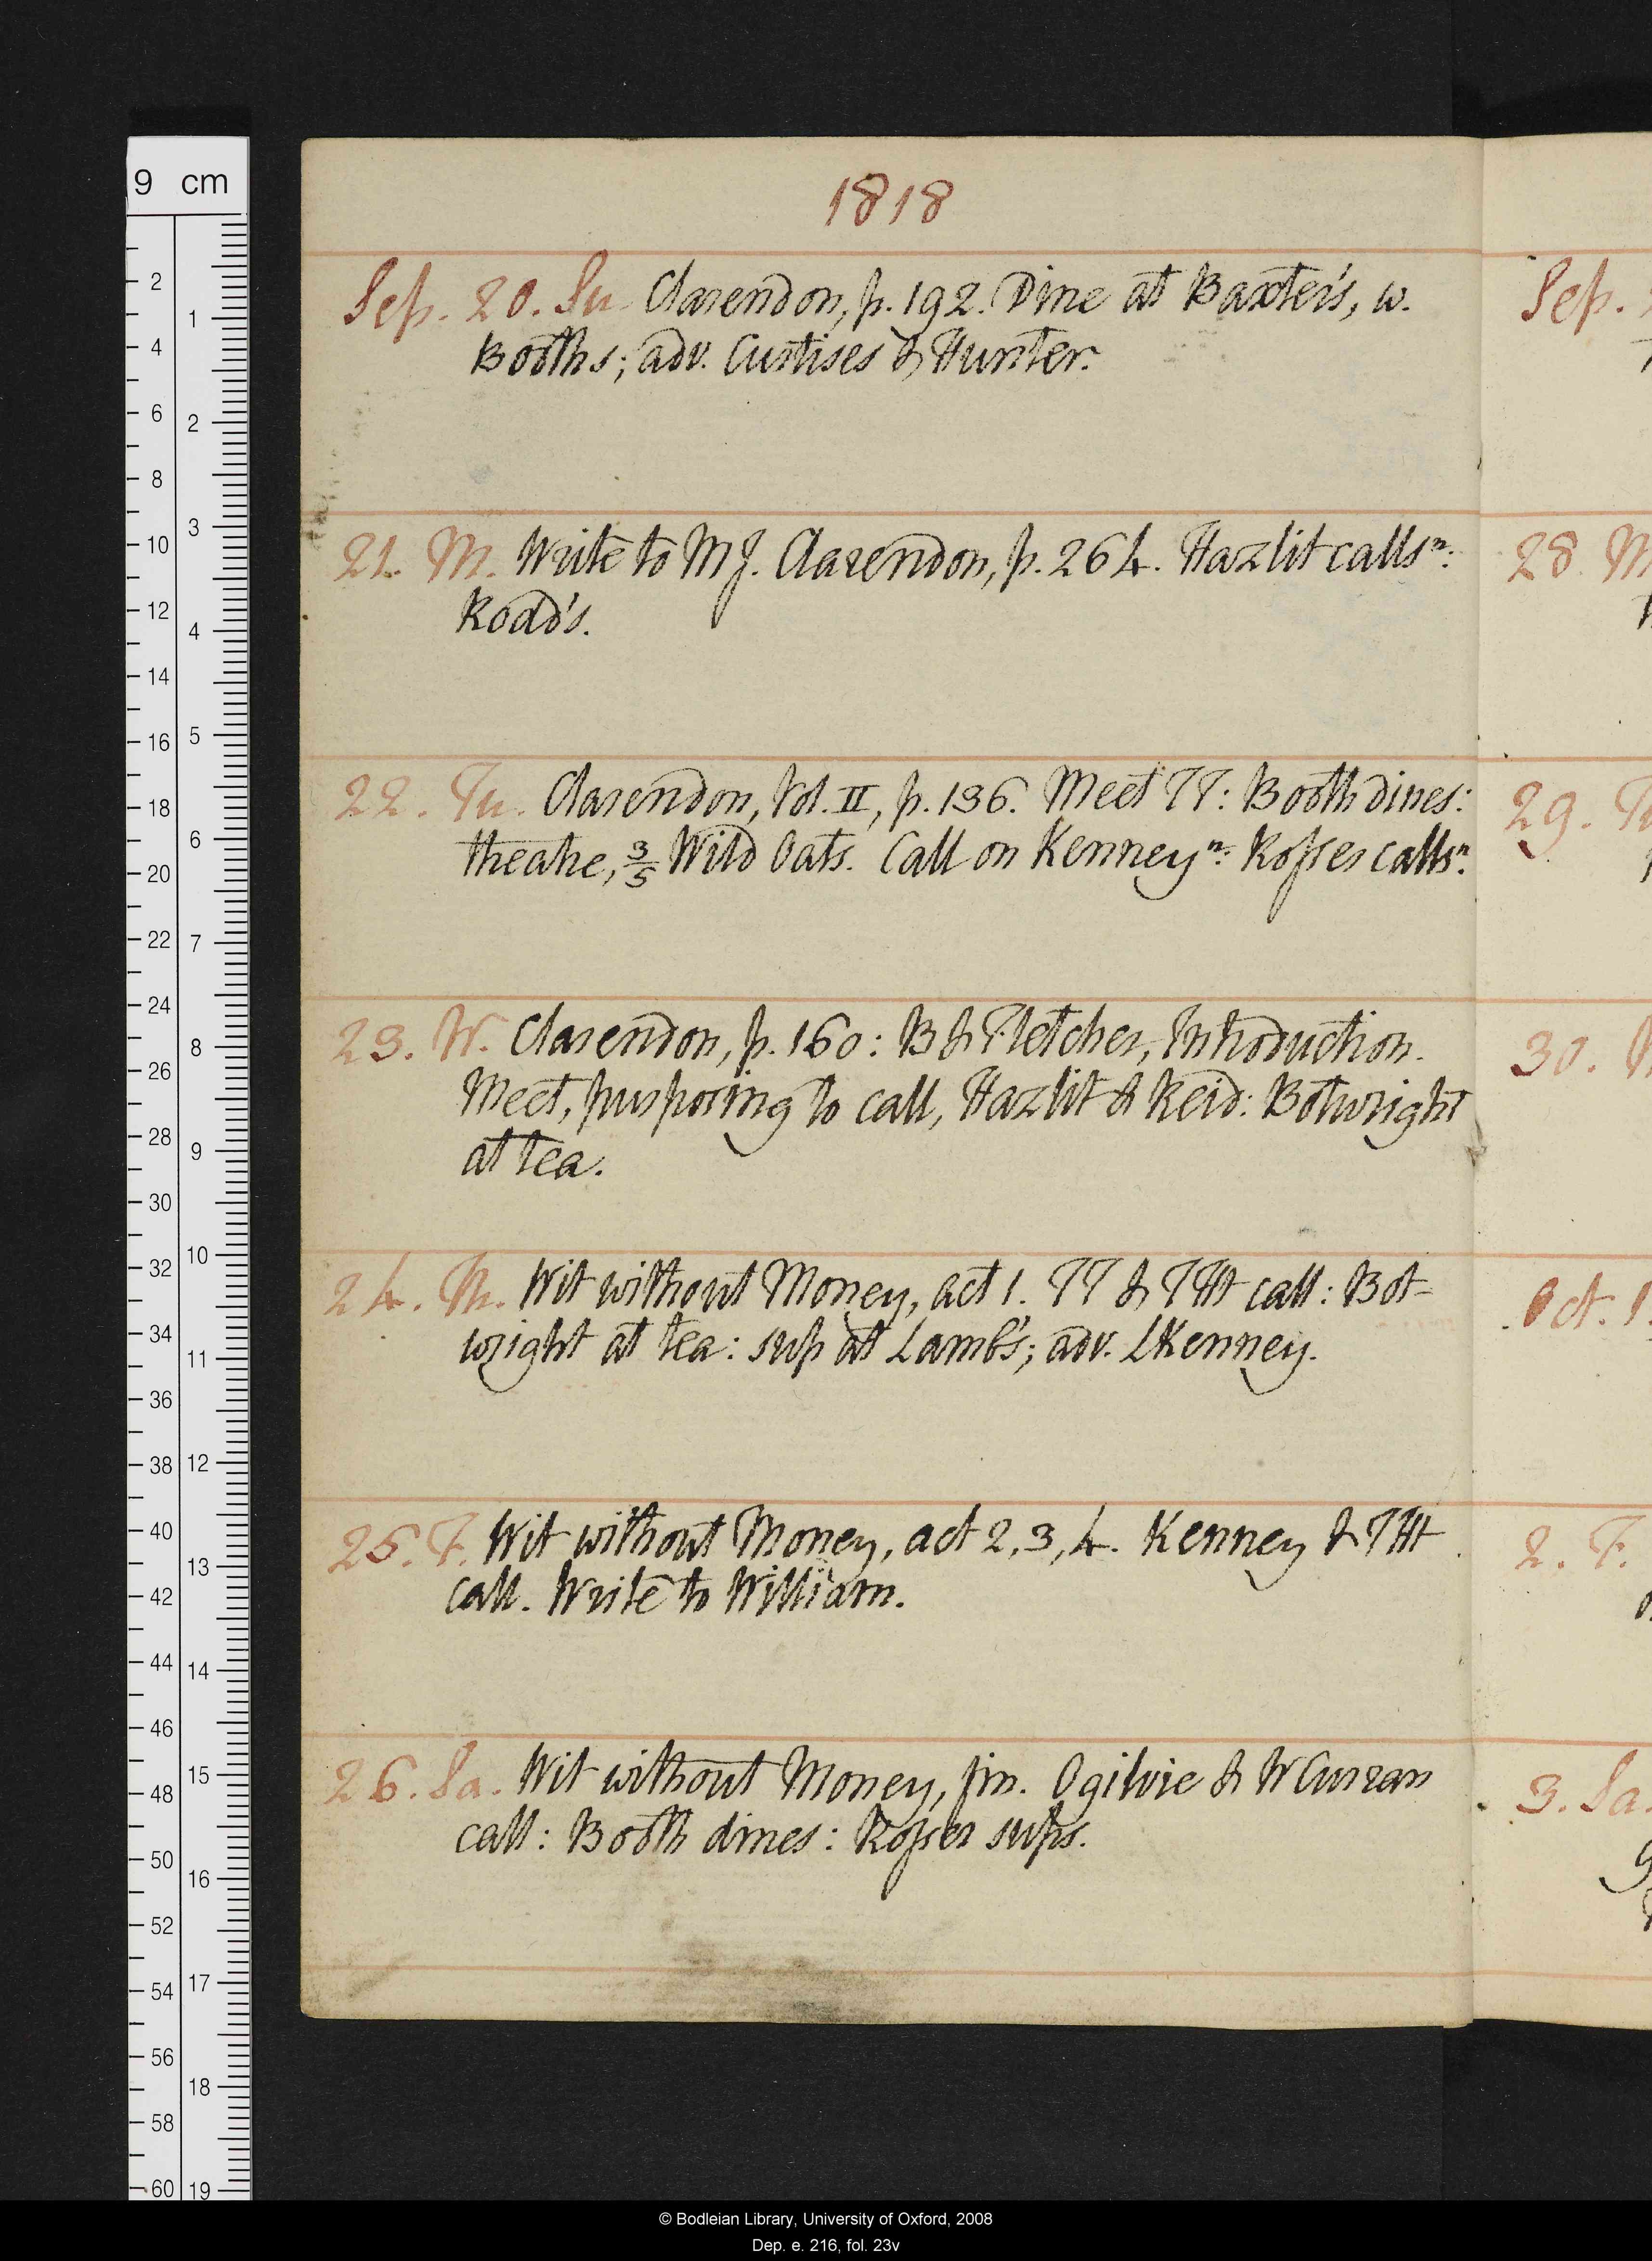 1818
Sep. 20. Su Clarendon, p. 192. Dine at Baxter's, w.
Booths; adv. Curtises & Hunter.
21. M. Write to MJ. Clarendon, p. 264. Hazlit calls n:
Rodd's.
22. Tu. Clarendon, Vol. II, p. 136. Meet TT: Booth dines:
theatre, 3/5 Wild Oats. Call on Kenney n: Rosser calls n.
23. W. Clarendon, p. 160: B & Fletcher, Introduction.
Meet, purposing to call, Hazlit & Reid: Botwright
at tea.
24. Th. Wit without Money, act 1. TT & THt call: Bot=
wright at tea: sup at Lamb's; adv. LKenney.
25. F. Wit without Money, act 2, 3, 4. Kenney & THt
call. Write to William.
26. Sa. Wit without Money, fin. Ogilvie & W Curran
call: Booth dines: Rosser sups.
Sep.
28 M
29. Tu
30. W
Oct. 1.
2. F.
3. Sa.
9 cm
2 4 6 8 10 12 14 16 18 20 22 24 26 28 30 32 34 36 38 40 42 44 46 48 50 52 54 56 58 60
1 2 3 4 5 6 7 8 9 10 11 12 13 14 15 16 17 18 19
© Bodleian Library, University of Oxford, 2008
Dep. e. 216, fol. 23v